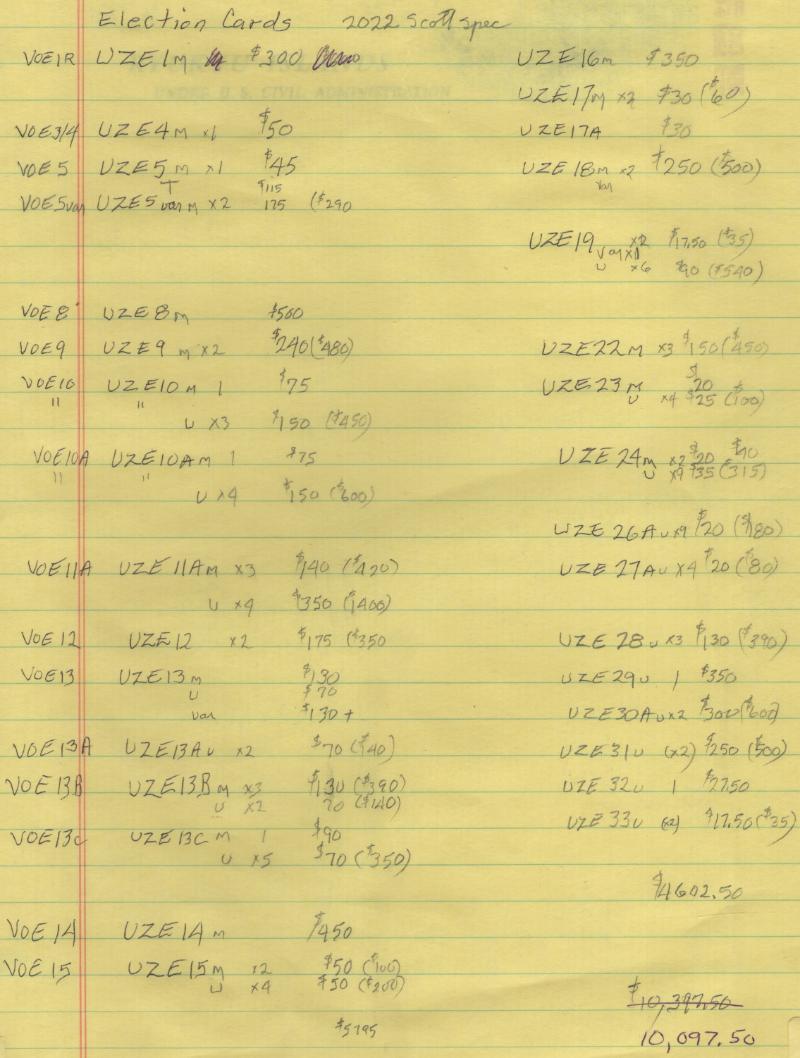 Election Cards 2022 Scott Spec
VOE1R UZE1m $300
VOE3/4 UZE4m x1 $50
VOE5 UZE5m x1 $45
$115
VOE5var UZE5var m x2 175 ($290
VOE8 UZE8m $500
VOE9 UZE9 m x2 $240($480)
VOE10 UZE10 m 1 $75
" " u x3 $150 ($450)
VOE10A UZE10A m 1 $75
" " u x4 $150 ($600)
VOE11A UZE11Am x3 $140 ($420)
u x4 $350 ($1400)
VOE12 UZE12 x2 $175 ($350
VOE13 UZE13m $130
u $70
var $130 +
VOE13A UZE13Au x2 $70 ($140)
VOE13B UZE13Bm x3 $130 ($390)
u x2 70 ($140)
VOE13C UZE13C m 1 $90
u x5 $70 ($350)
VOE14 UZE14m $450
VOE15 UZE15m x2 $50 ($100)
u x4 $50 ($200)
$5795
UZE16m $350
UZE17m x2 $30 ($60)
UZE17A $30
UZE18m x2 $250 ($500)
var
UZE19 x2 $17.50 ($35)
var x1
u x6 $90 ($540)
UZE22m x3 $150($450)
UZE23m $20
u x4 $25 ($100)
UZE24m x2 $20 $40
u x9 $35 (315)
UZE26Au x9 $20 ($180)
UZE27Au x4 $20 ($80)
UZE28u x3 $130 ($390)
UZE29u 1 $350
UZE30Au x2 $300($600)
UZE31u (x2) $250 (500)
UZE32u 1 $27.50
UZE33u (x2) $17.50($35)
$4602.50
$10,397.50
10,097.50